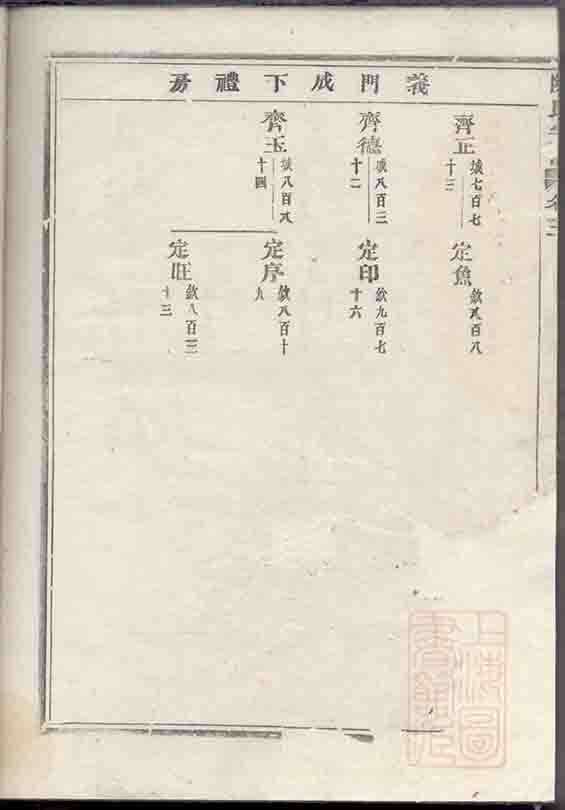 義門成下禮房
齊正
珹七百七
十三
齊德
珹八百三
十二
齊玉
珹八百六
十四
定魚
欽八百八
定印
欽九百七
十六
定序
欽八百十
九
定旺
欽八百三
十三
上海圖
書館